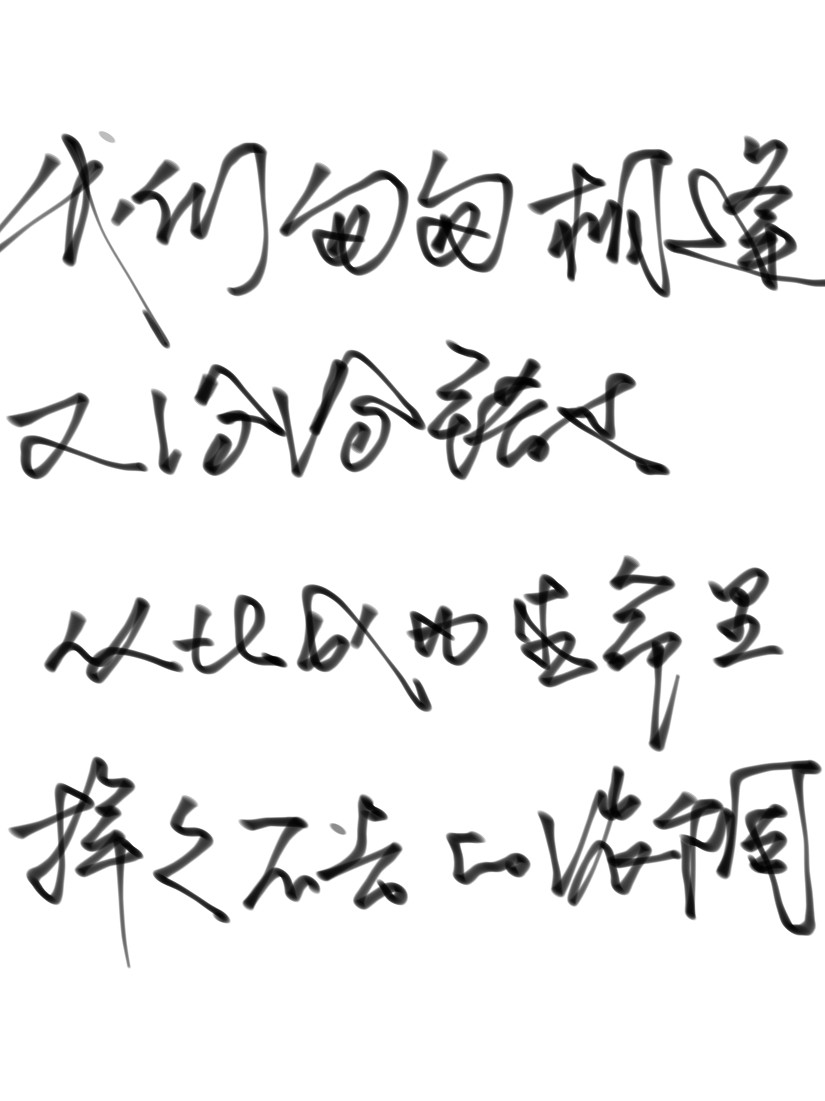 我们匆匆相逢
又恰恰错过
从此成为生命里
挥之不去的惆怅